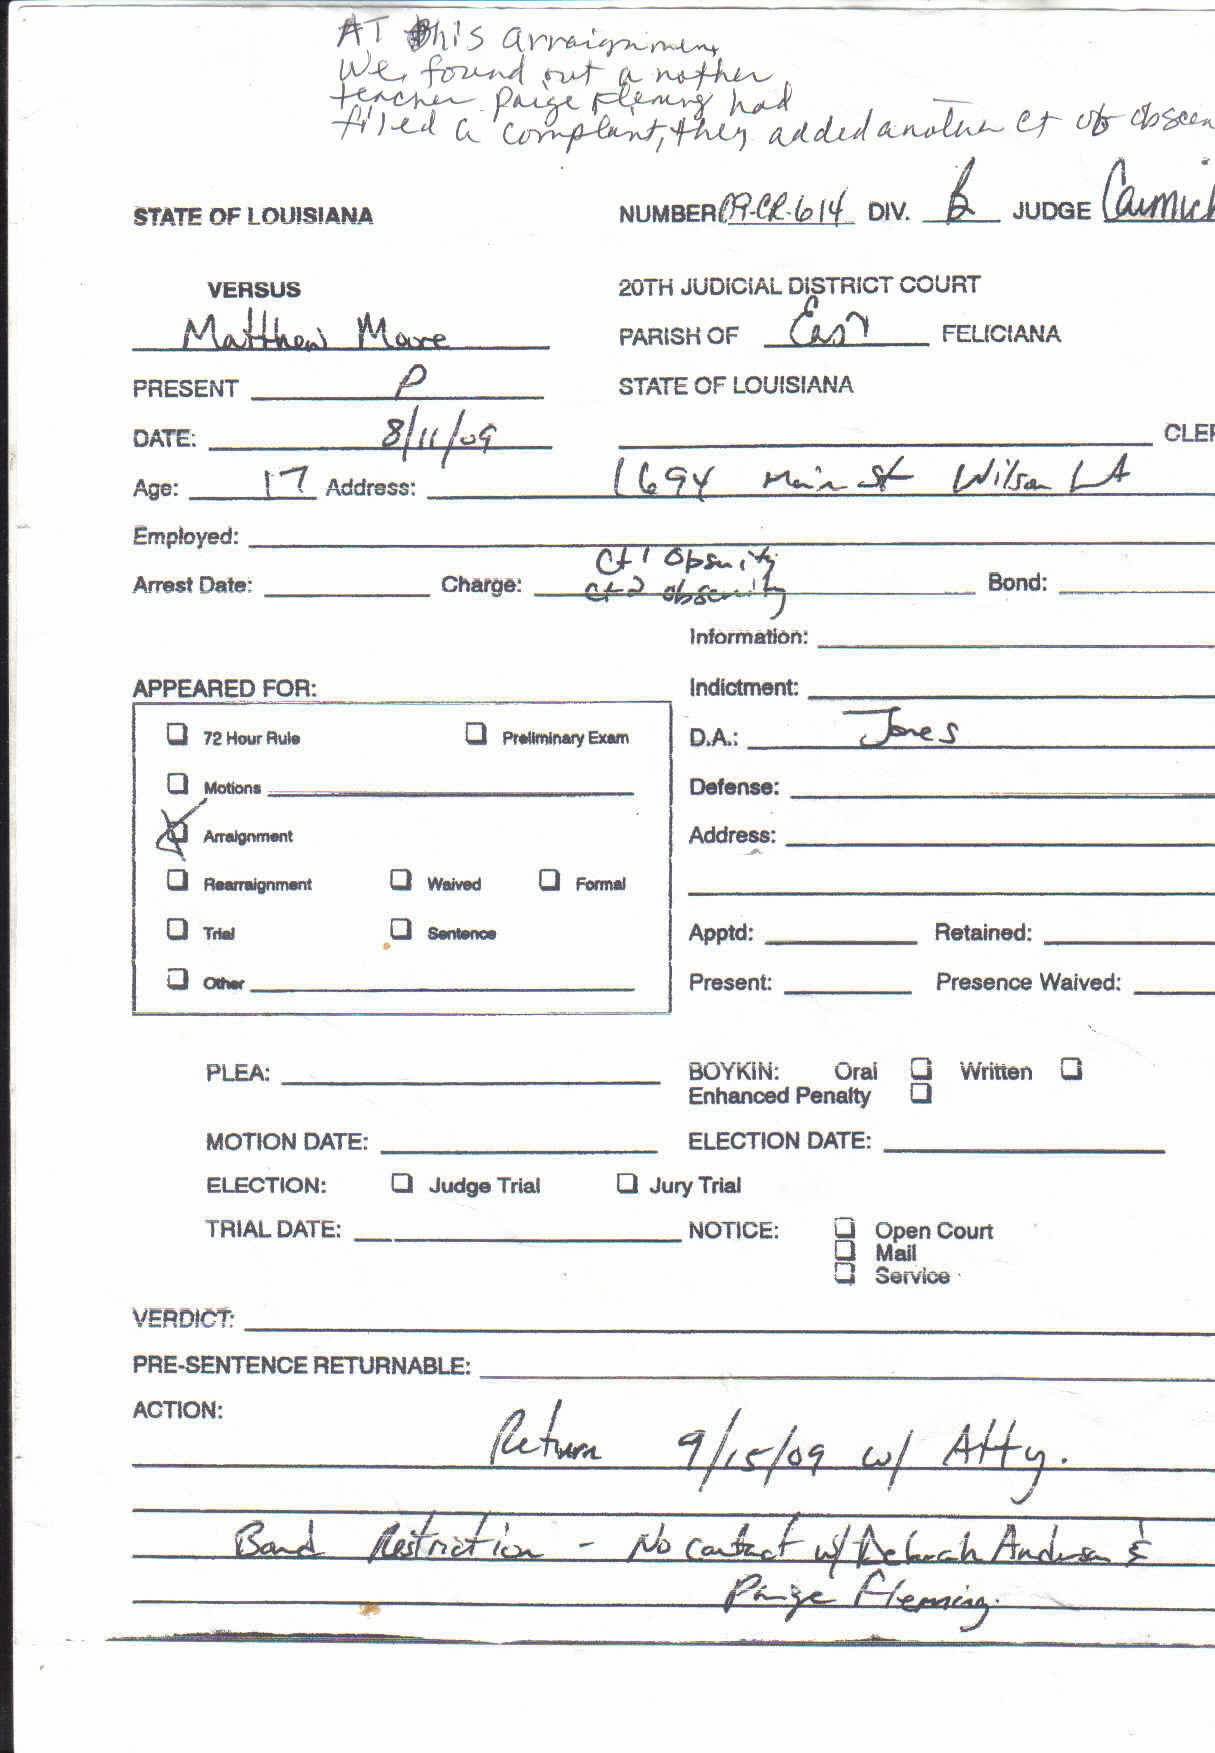 AT this arraignment
We, found out a nother
teacher Paige Fleming had
filed a complant, they added another ct of obscen
STATE OF LOUISIANA NUMBER 09-CR-614 DIV. B JUDGE Carmich
VERSUS 20TH JUDICIAL DISTRICT COURT
Matthew More PARISH OF East FELICIANA
PRESENT P STATE OF LOUISIANA
DATE: 8/11/09 CLER
Age: 17 Address: 1694 Main St Wilson LA
Employed:
Ct 1 Obsnity
Arrest Date: Charge: Ct 2 obscenity Bond:
Information:
APPEARED FOR: Indictment:
72 Hour Rule Preliminary Exam D.A.: Jones
Motions Defense:
Arraignment Address:
Rearraignment Waived Formal
Trial Sentence Apptd: Retained:
Other Present: Presence Waived:
PLEA: BOYKIN: Oral Written
Enhanced Penalty
MOTION DATE: ELECTION DATE:
ELECTION: Judge Trial Jury Trial
TRIAL DATE: NOTICE: Open Court
Mail
Service
VERDICT:
PRE-SENTENCE RETURNABLE:
ACTION:
Return 9/15/09 w/ Atty.
Bond Restriction - No contact w/ Deborah Anderson &
Paige Fleming.